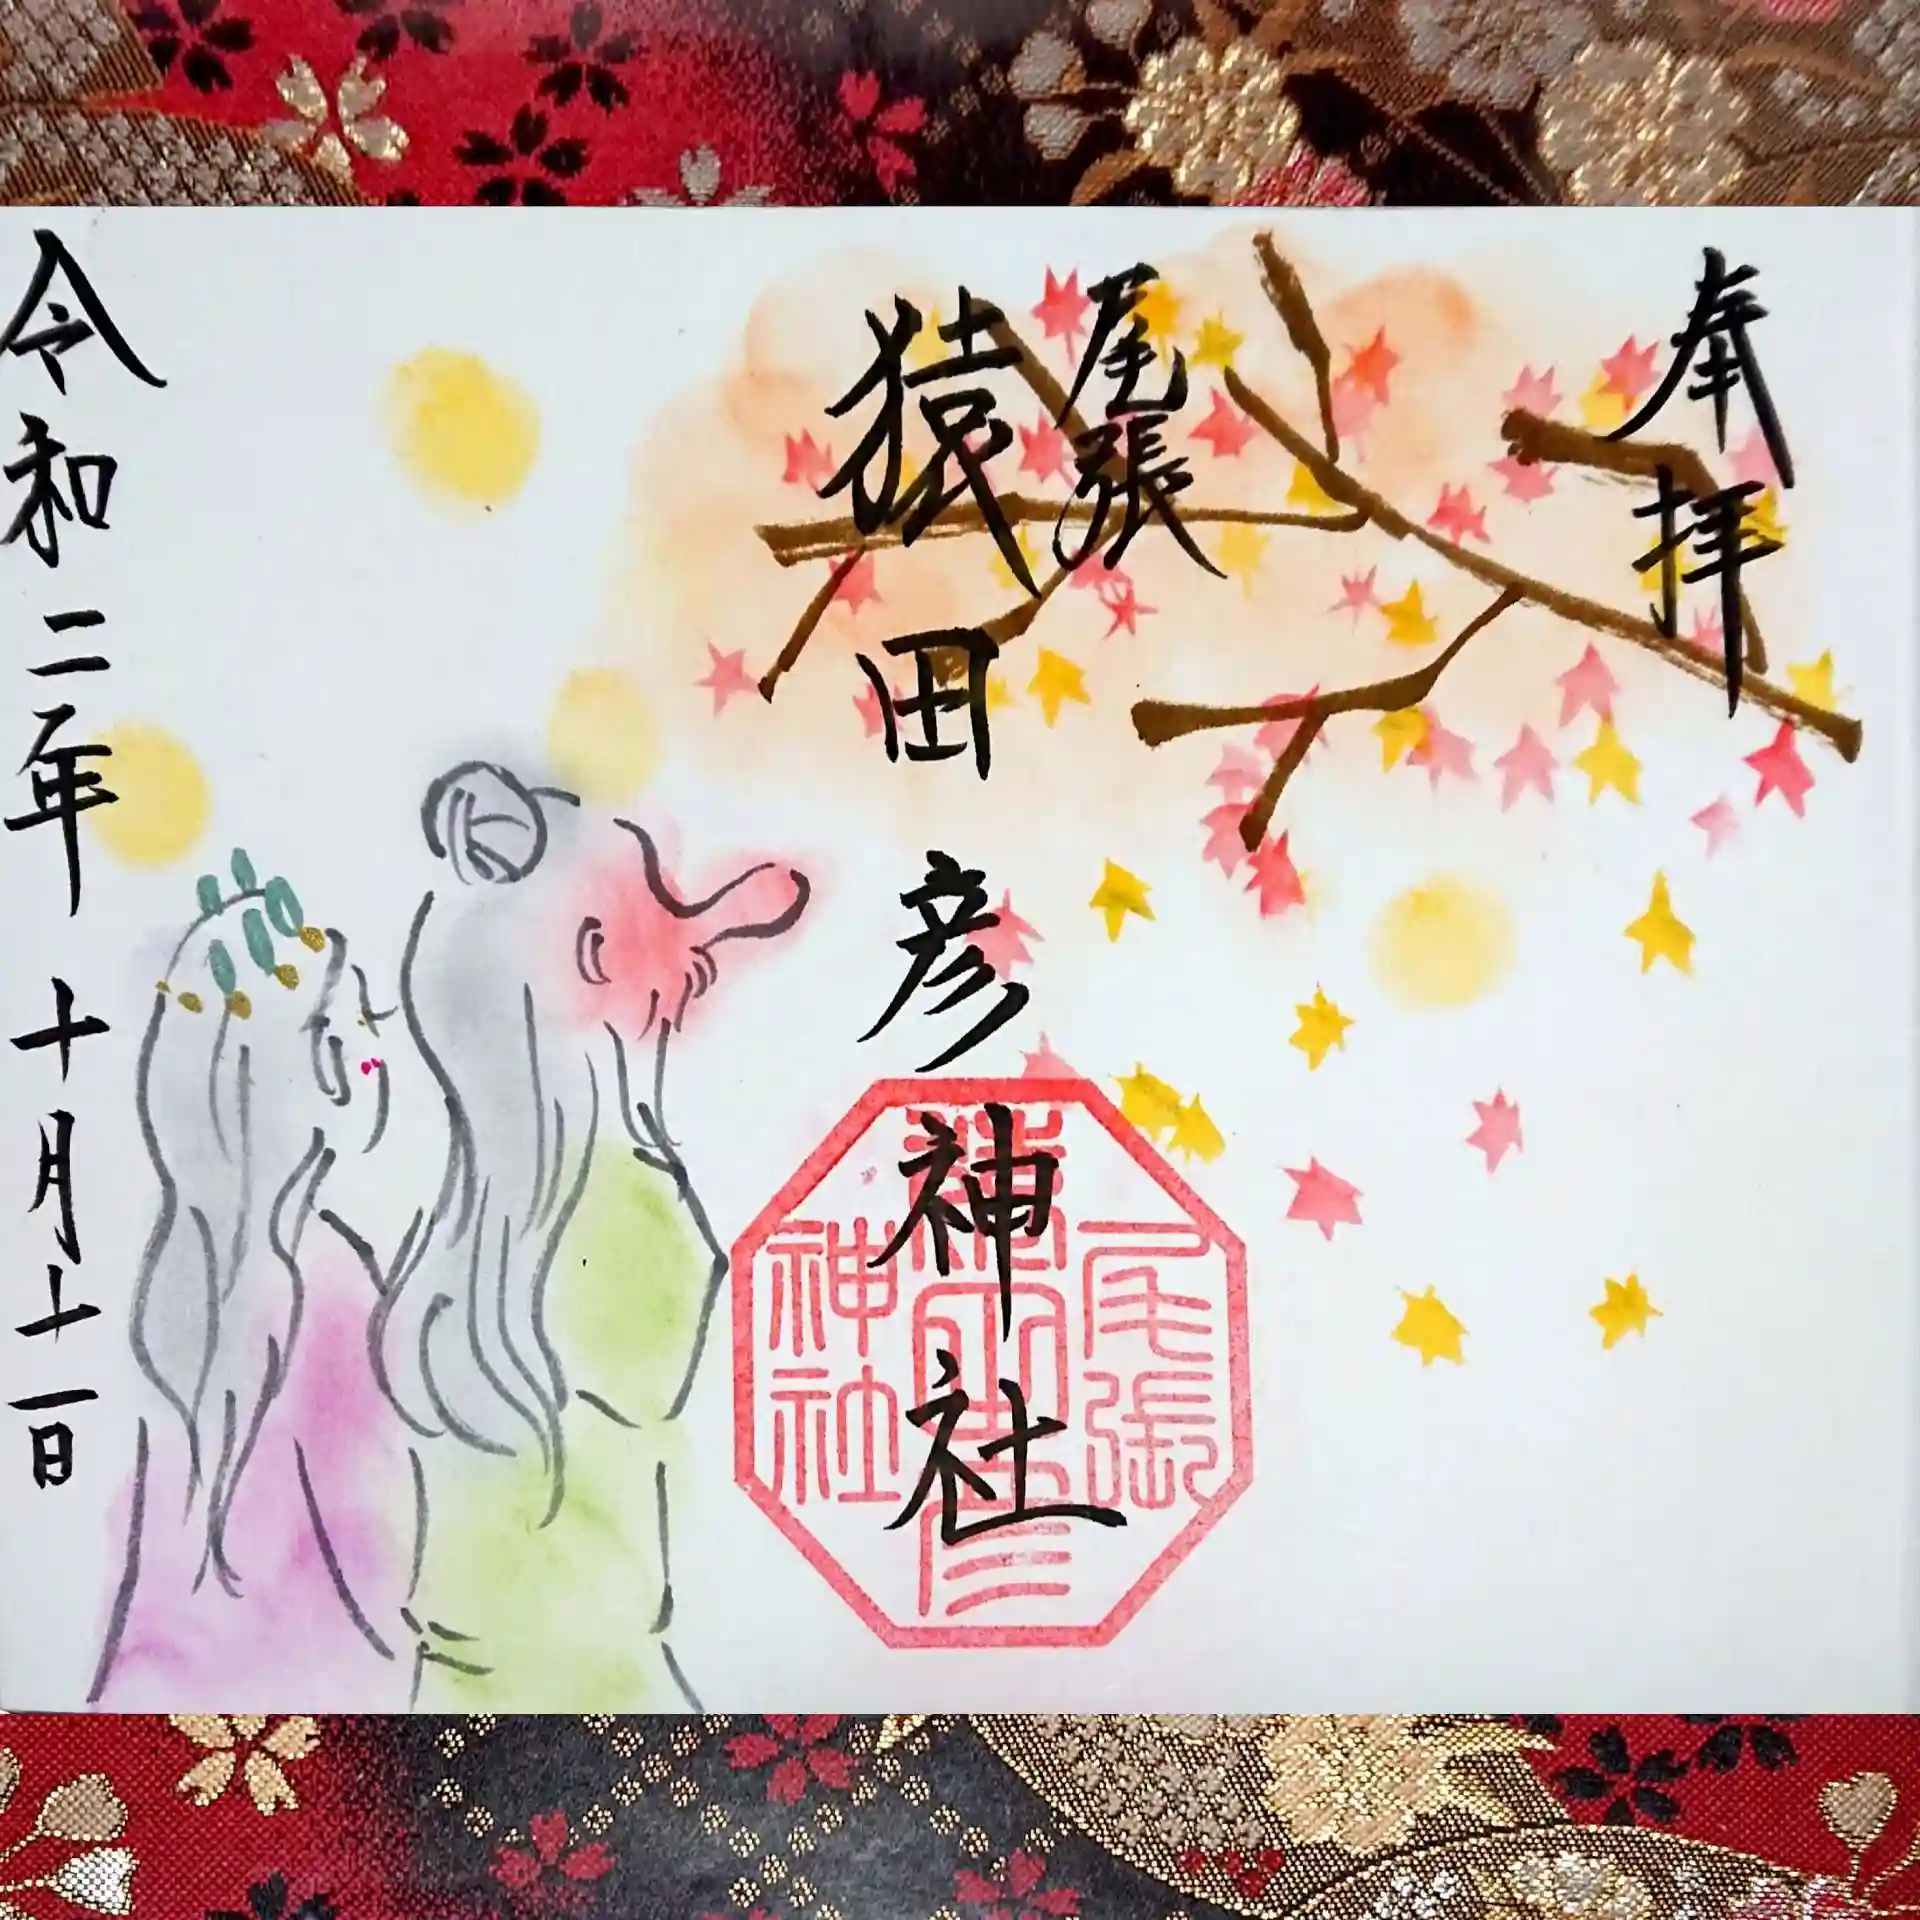 奉拝
尾張
猿田彦神社
尾張
猿田彦
神社
令和二年 十月十一日